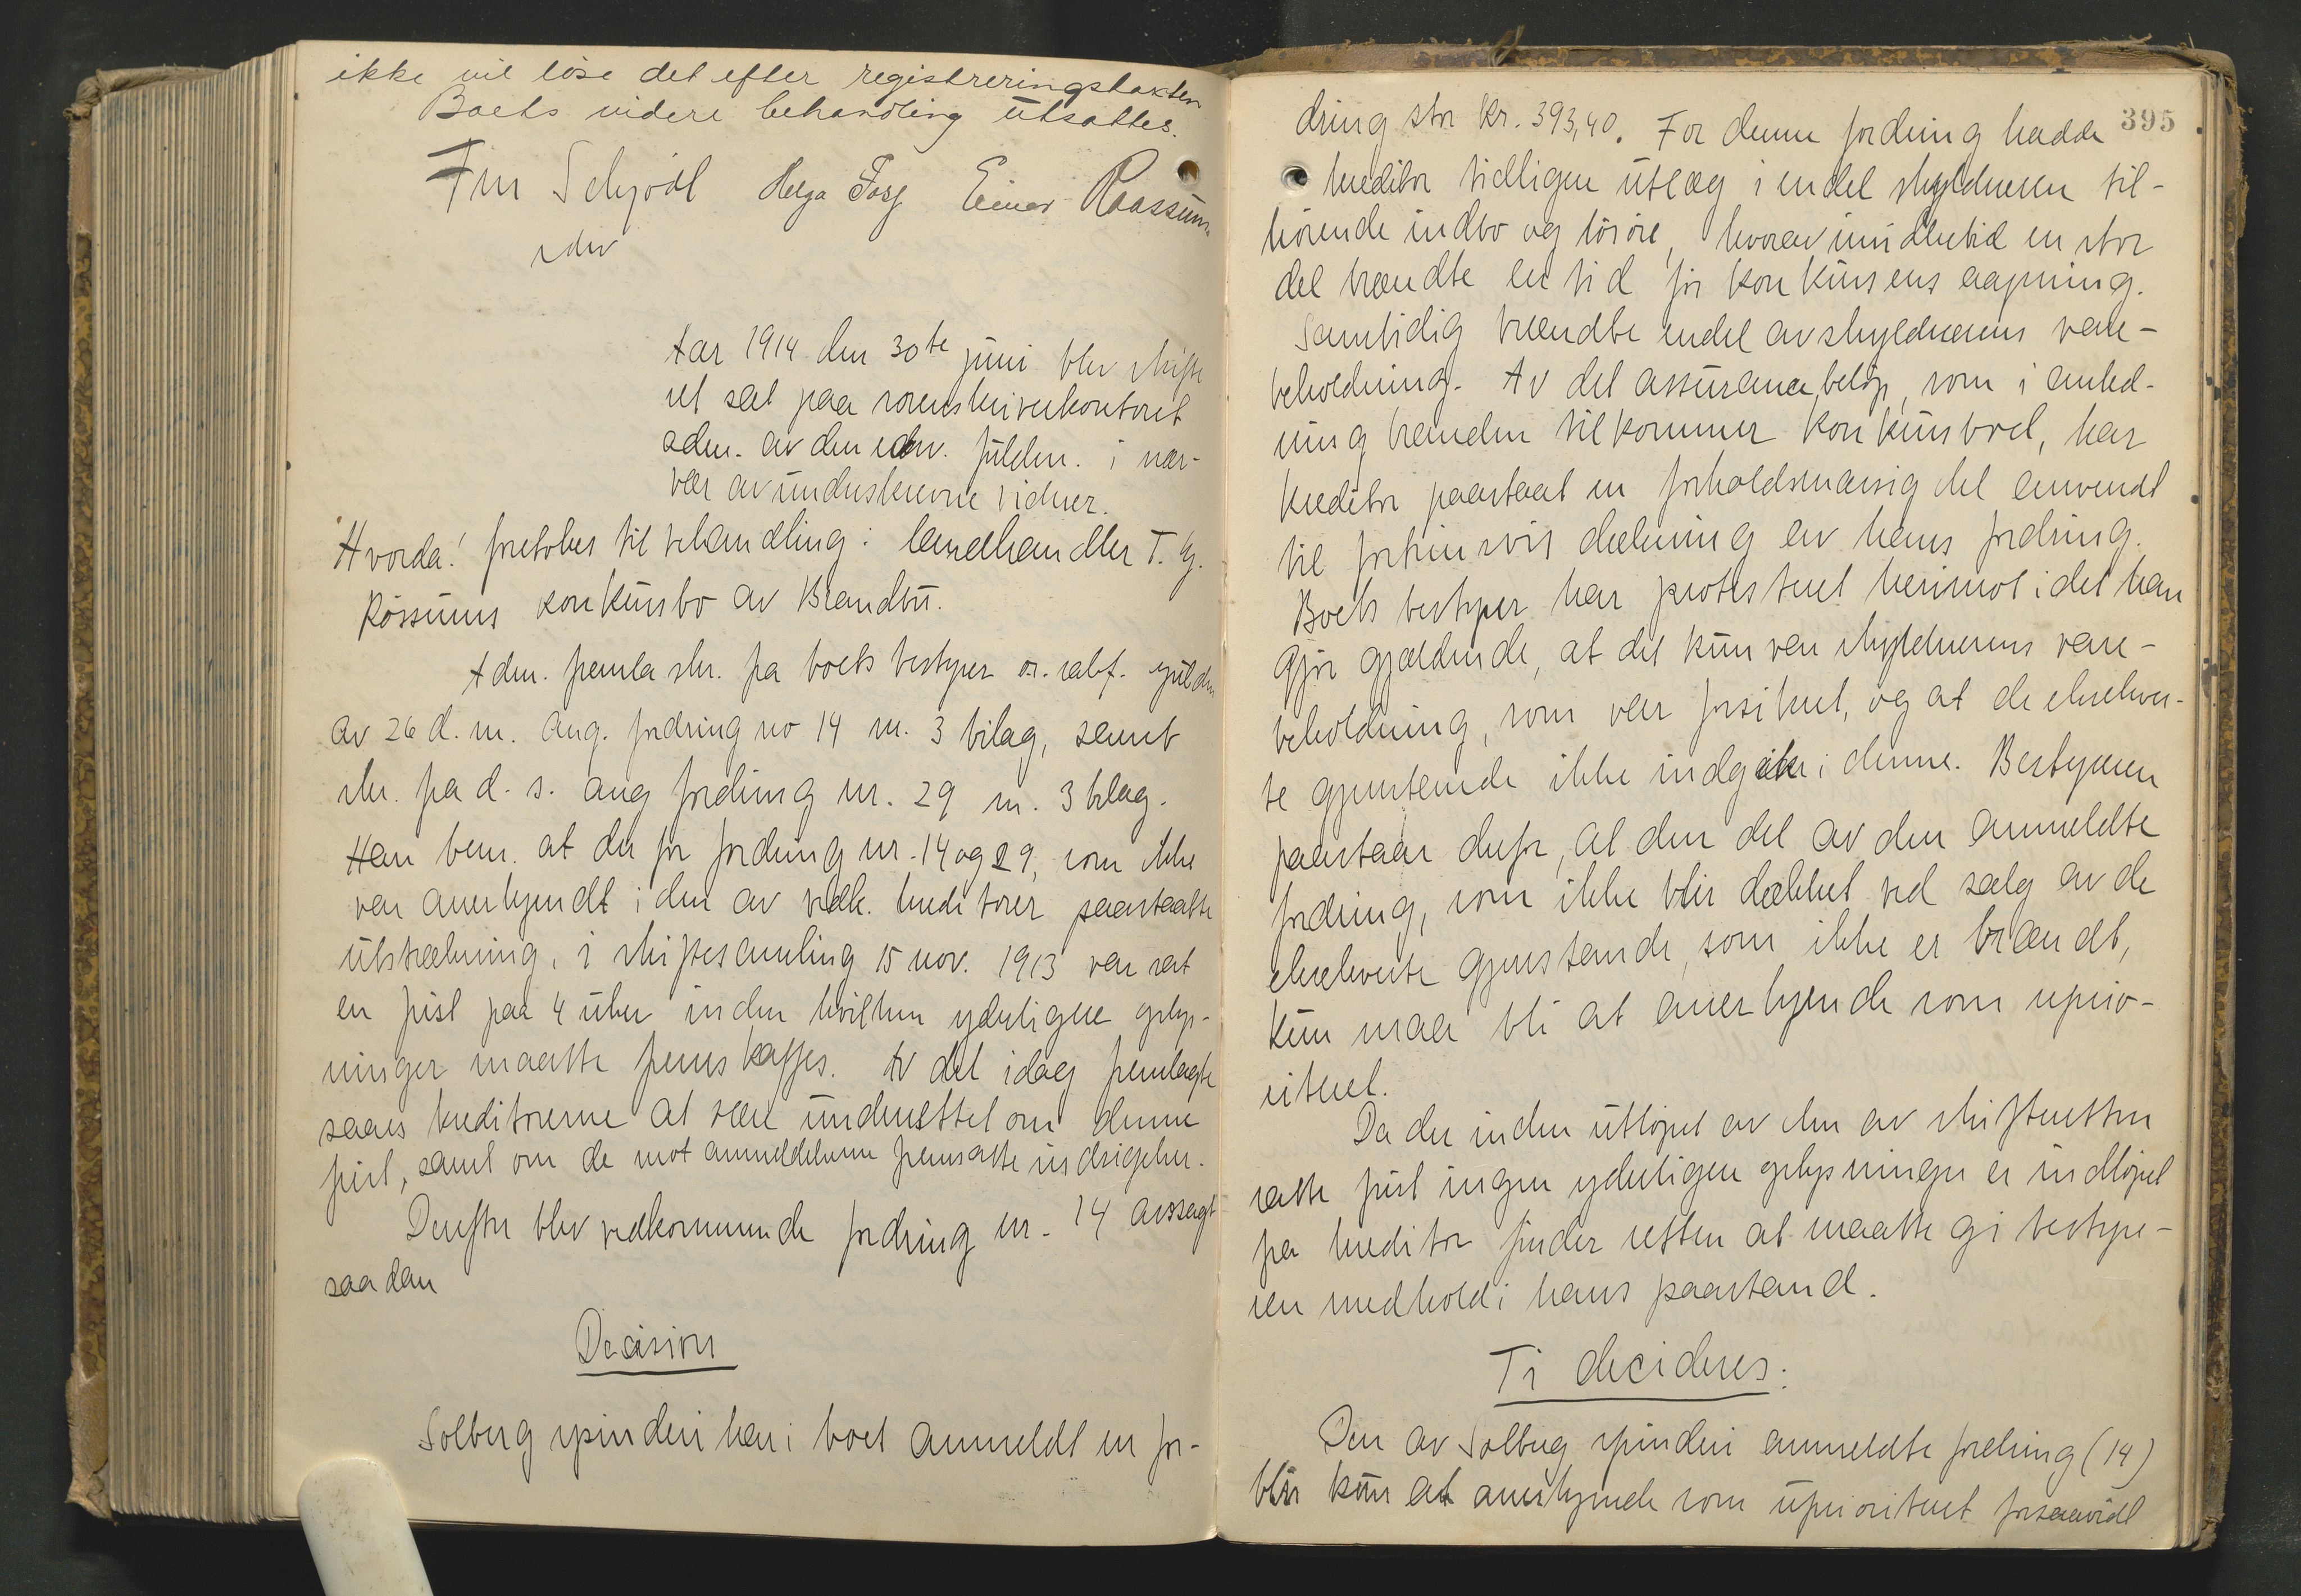 ikke vil löse det efter registreringstaksten
Boets videre behandling utsattes.
Finn Schjödt Helga Foss Einar Raassum
edsv
Aar 1914 den 30te juni blev skifte
ret sat paa sorenskriverkontoret
adm. av den edsv. fuldm. i nær-
vær av underskrevne vidner.
Hvorda! foretokes til behandling: landhandler T. G.
Røssums konkursbo av Brandbu.
Adm. fremla skr. fra boets bestyrer o.r. sakf.
av 26 d. m. ang. fordring no 14 m. 3 bilag, samt
skr. fra d. s. ang fordring nr. 29 m. 3 bilag.
Han bem. at der for fordring nr. 14 og 29, som ikke
var anerkjendt i den av vedk. kreditorer paastaatte
utstrækning, i skiftesamling 15 nov. 1913 var sat
en frist paa 4 uker inden hvilken yderligere oplys-
ninger maatte fremskaffes. Av det idag fremlagte
saaes kreditorerne at være underrettet om denne
frist, samt om de mot anmeldelserne fremsatte indsigelser.
Derefter blev vedkommende fordring nr. 14 avsagt
saadan
Decision
Solberg spinderi har i boet anmeldt en for-
395
dring stor kr. 393,40. For denne fordring hadde
kreditor tidligere utlæg i endel skyldneren til-
hörende indbo og lösöre, hvorav imidlertid en stor
del brændte en tid för konkursens aapning.
Samtidig brændte endel av skyldnerens vare-
beholdning. Av det assurancebelöp, som i anled-
ning branden tilkommer konkursboet, har
kreditor paastaat en forholdsmæssig del anvendt
til fortrinsvis dækning av hans fordring.
Boets bestyrer har protestert herimot idet han
gjör gjældende, at det kun var skyldnerens vare-
beholdning, som var forsikret, og at de eksekver-
te gjenstande ikke indgik i denne. Bestyreren
paastaar derfor, at den del av den anmeldte
fordring, som ikke blir dækket ved salg av de
eksekverte gjenstande, som ikke er brændt,
kun maa bli at anerkjende som uprio-
ritert.
Da der inden utlöpet av den av skifteretten
satte frist ingen yderligere oplysninger er indlöpet
fra kreditor finder retten at maatte gi bestyre-
ren medhold i hans paastand.
Ti decideres:
Den av Solberg spinderi anmeldte fordring (14)
blir kun at anerkjende som uprioritert forsaavidt